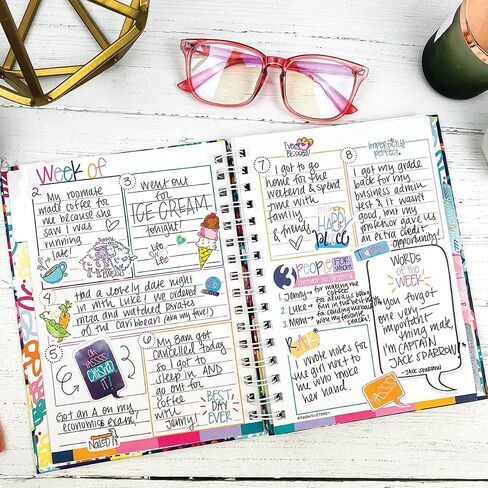 Week of
2
My roomate
made coffee for
me because she
saw I was
running
late!
3
Went out
for
ICE CREAM
tonight!
Life
is
Life
4
Had a lovely date night
in with Luke! We ordered
pizza and watched Pirates
of the Caribbean (aka my fave)
5
OH
YASSSS
CRUSHED
IT!
Got an A on my
economics exam!
NaileD it
6
My 8am got
cancelled today
so I got to
sleep in AND
go out for
coffee
with
Jenny!
BEST
DAY
EVER
I'm
Blessed!
7
I got to go
home for the
weekend & spend
time with
family
& friends
HAPPY
place
imperfectly
perfect
8
I got my grade
back for my
business admin
test & it wasn't
good, but my
professor gave us
an extra credit
opportunity!
3 people
FOR WHOM
I'm ever so grateful
1 Jenny → for making me
coffee
2 Luke → for always being
3 Mom →
with my favorite
WORDS
of the
WEEK
"You forgot
one very
important
thing mate,
I'M CAPTAIN
JACK SPARROW!"
- JACK SPARROW
wrote notes for
my girl next to
me who broke
her hand.
YASSS!